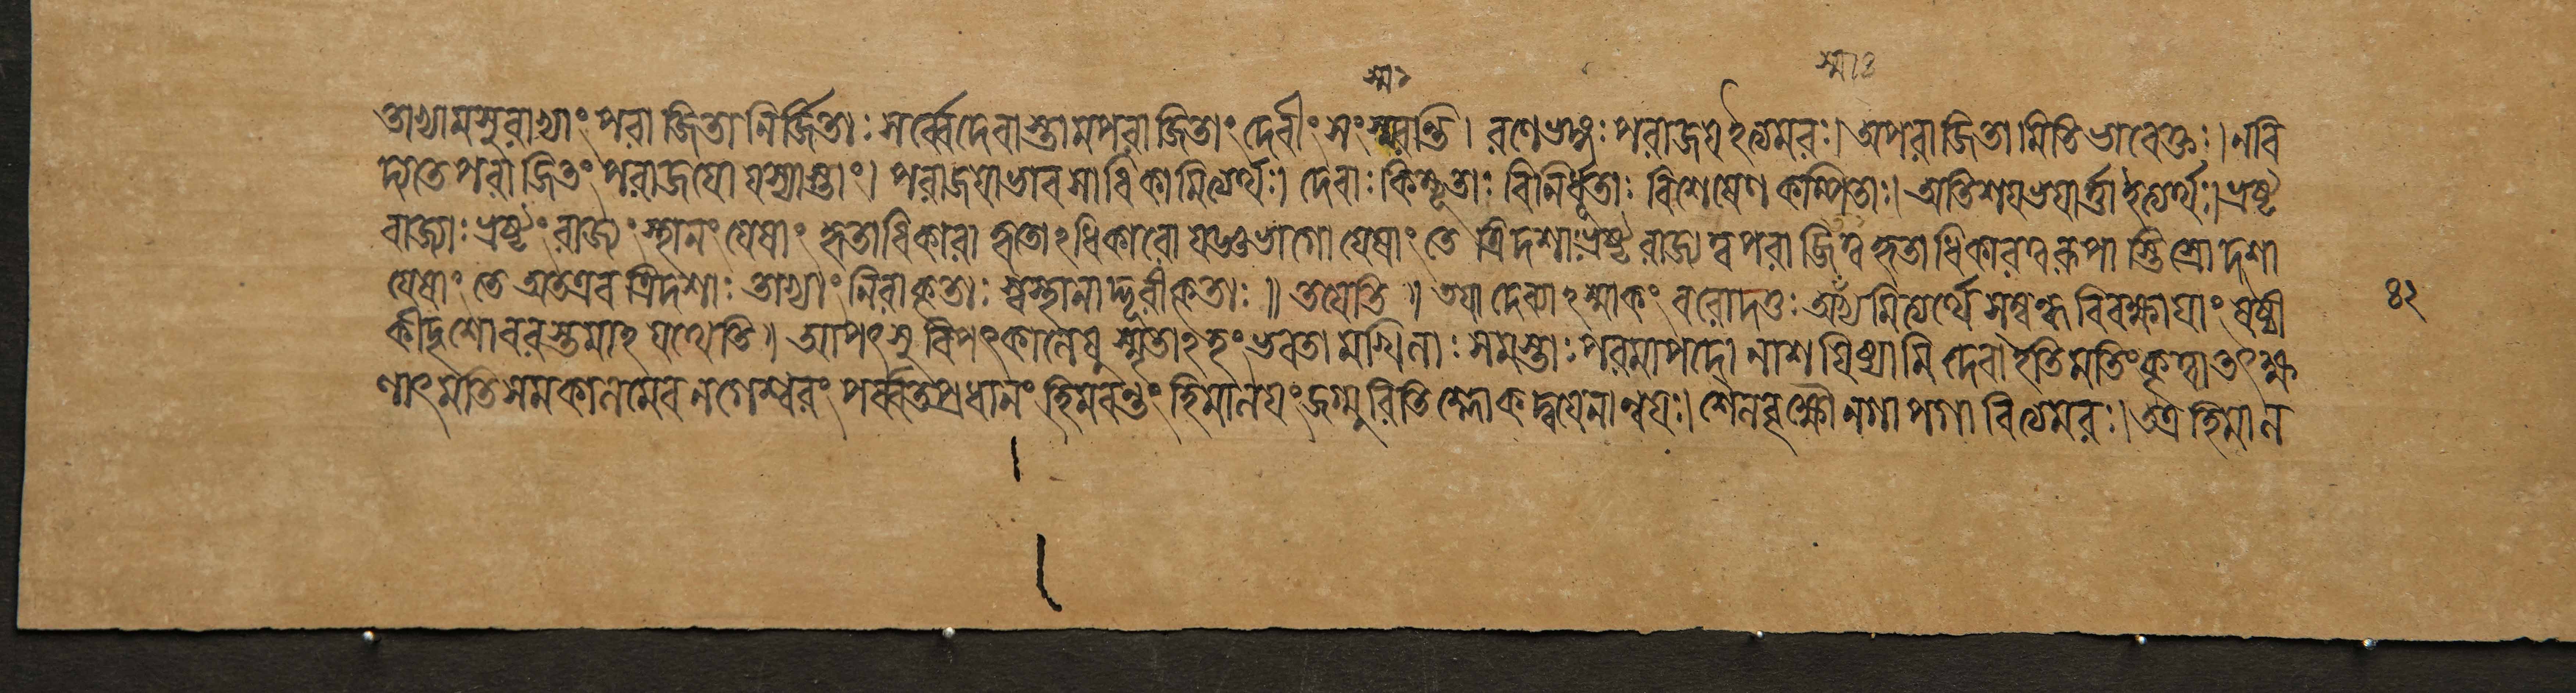 স্ম১
স্মা৪
তাভ্যামসুরাভ্যাং পরাজিতা নির্জিতাঃ সর্ব্বে দেবাস্তামপরাজিতাং দেবীং সংস্মরন্তি। রণেভঙ্গঃ পরাজয ইত্যমরঃ। অপরাজিতামিতি ভাবেক্তঃ। নবি
দ্যতে পরাজিতং পরাজযো যস্যাস্তাং। পরাজযাভাব সাধিকামিত্যর্থঃ। দেবাঃ কিম্ভূতাঃ বিনির্ধূতাঃ বিশেষেণ কম্পিতাঃ। অতিশযভযার্ত্তা ইত্যর্থঃ। ভ্রষ্ট
রাজ্যাঃ ভ্রষ্টং রাজ্যং স্থানং যেষাং হৃতাধিকারা হৃতোঽধিকারো যজ্ঞভাগো যেষাং তে ত্রিদশাঃ ভ্রষ্টরাজ্যত্বপরাজিত্বহৃতাধিকারত্বরূপাস্তিস্রোদশা
যেষাং তে অতএব ত্রিদশাঃ তাভ্যাং নিরাকৃতাঃ স্বস্থানাদ্দূরীকৃতাঃ॥ তযেতি॥ তযা দেব্যাঽস্মাকং বরোদত্তঃ অস্মভ্যমিত্যর্থে সম্বন্ধ বিবক্ষাযাং ষষ্ঠী
কীদৃশো বরস্তমাহ যথেতি॥ আপৎসু বিপৎকালেষু স্মৃতাঽহং ভবতামখিলাঃ সমস্তাঃ পরমাপদো নাশযিষ্যামি দেবা ইতি মতিং কৃত্বা তৎক্ষ
ণাৎ মতি সমকালমেব নগেশ্বরং পর্ব্বতপ্রধানং হিমবন্তং হিমালযং জগ্মুরিতি শ্লোকদ্বযেনান্বযঃ। শৈলবৃক্ষৌ নগাবগাবিত্যমরঃ। অত্র হিমাল
৪২